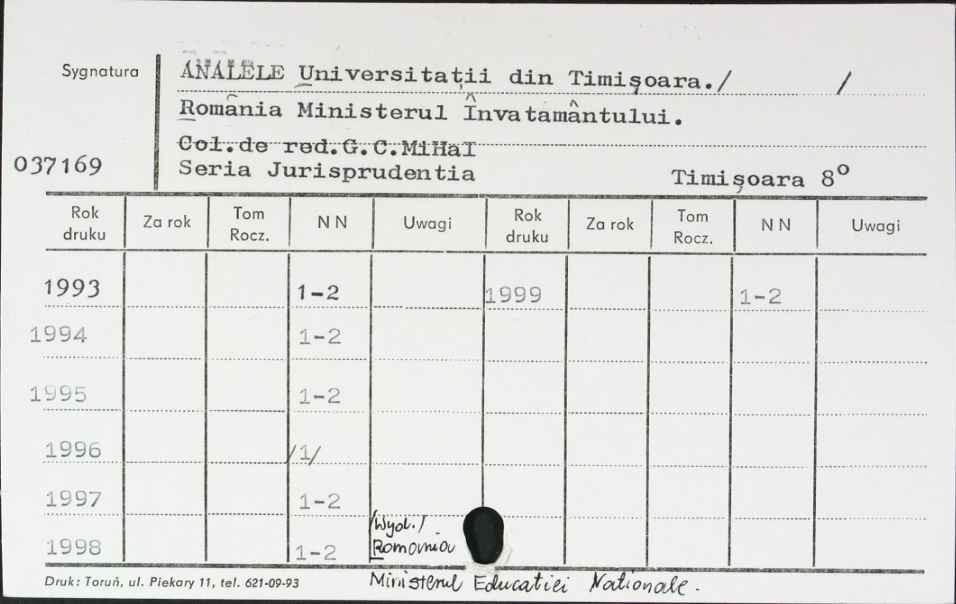 Sygnatura
ANALELE Universitaţii din Timişoara./ /
România Ministerul Învatamântului.
Col.de red.G.C.MiHaI
037169
Seria Jurisprudentia Timişoara 8º
Rok druku Za rok Tom Rocz. N N Uwagi Rok druku Za rok Tom Rocz. N N Uwagi
1993 1-2 1999 1-2
1994 1-2
1995 1-2
1996 /1/
1997 1-2
/Wyd./
1998 1-2 Romania
Druk: Toruń, ul. Piekary 11, tel. 621-09-93
Ministerul Educatiei Nationale.